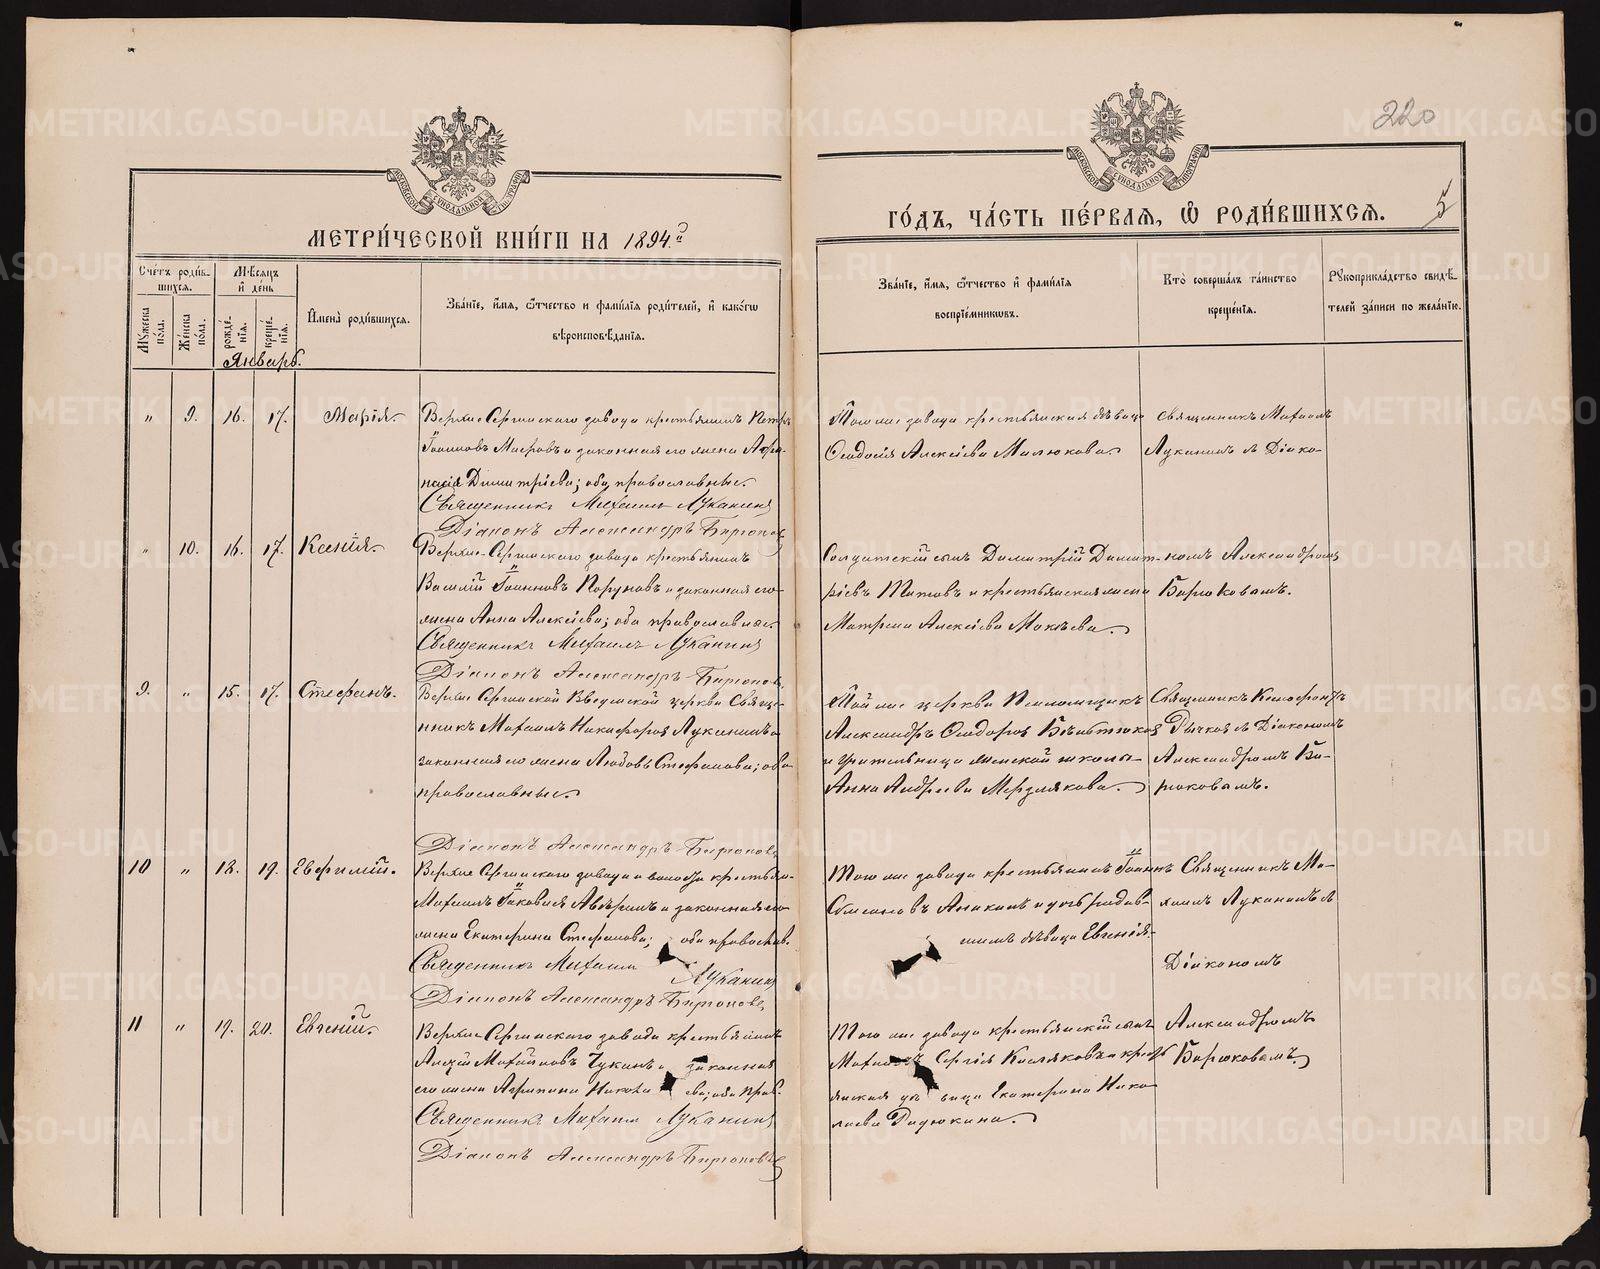 220
5
МЕТРИ́ЧЕСКОЙ КНИ́ГИ НА 1894й
ГО́ДЪ, ЧА́СТЬ ПЕ́РВАЯ, Ѡ РОДИ́ВШИХСЯ.
Сче́тъ роди́вшихся.
Мѣ́сяцъ и де́нь
Му́жеска по́ла.
Же́нска по́ла.
рожде́нїя.
креще́нїя.
Имена̀ роди́вшихся.
Зва́нїе, и́мя, ѻ́тчество и фами́лїя роди́телей, и како́гѡ
вѣроисповѣ́данїя.
Зва́нїе, и́мя, ѻ́тчество и фами́лїя
воспрїе́мниковъ.
Кто̀ соверша́лъ та́инство
креще́нїя.
Рукоприкла́дство свидѣ́телей за́писи по жела́нїю.
Январь.
„ 9. 16. 17. Марія.
Верхне-Сергинскаго завода крестьянинъ Петръ
Іоанновъ и законная его жена Афа-
насія Димитріева; оба православные.
Священникъ Михаилъ Луканинъ
Діаконъ Александръ Бирюковъ
Того же завода крестьянская дѣвица
Ѳеодосія Алексѣева Милюкова.
Священникъ Михаилъ
Луканинъ съ Діако-
„ 10. 16. 17. Ксенія.
Верхне-Сергинскаго завода крестьянинъ
Василій Іоанновъ и законная его
жена Анна Алексѣева; оба православные.
Священникъ Михаилъ Луканинъ
Діаконъ Александръ Бирюковъ
Солдатскій сынъ Димитрій Димит-
ріевъ Титовъ и крестьянская жена
Матрена Алексѣева
номъ Александромъ
Бирюковымъ.
9. „ 15. 17. Стефанъ.
Верхне-Сергинской Введенской церкви Священ-
никъ Михаилъ Никифоровъ Луканинъ и
законная его жена Любовь Стефанова; оба
православные.
Діаконъ Александръ Бирюковъ
Той же церкви Псаломщикъ
Александръ Ѳеодоровъ
и учительница женской школы
Анна Андреева Мерзлякова.
Священникъ Ксенофонтъ
съ Діакономъ
Александромъ Би-
рюковымъ.
10 „ 18. 19. Евфимій.
Верхне-Сергинскаго завода и волости крестьян.
Михаилъ Іаковлевъ и законная его
жена Екатерина Стефанова; оба правосл.
Священникъ Михаилъ Луканинъ
Діаконъ Александръ Бирюковъ
Того же завода крестьянинъ Іоаннъ
шимъ дѣвица Евгенія.
Священникъ Ми-
хаилъ Луканинъ съ
Діакономъ
11 „ 19. 20. Евгеній.
Верхне-Сергинскаго завода крестьянинъ
законная
его жена Агрипина ева; оба прав.
Священникъ Михаилъ Луканинъ
Діаконъ Александръ Бирюковъ
Того же завода крестьянскій сынъ
и крест-
янская дѣвица Екатерина Нико-
лаева
Александромъ
Бирюковымъ.
METRIKI.GASO-URAL.RU